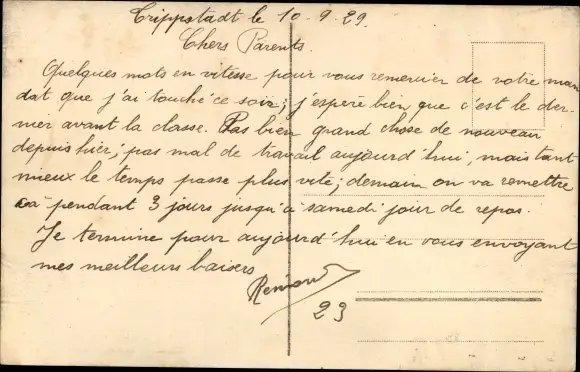 Trippstadt le 10-9-29.
Chers Parents.
Quelques mots en vitesse pour vous remercier de votre man
dat que j'ai touché ce soir; j'espère bien que c'est le der-
nier avant la classe. Pas bien grand chose de nouveau
depuis hier; pas mal de travail aujourd'hui, mais tant
mieux le temps passe plus vite; demain on va remettre
ça pendant 3 jours jusqu'à samedi jour de repos.
Je termine pour aujourd'hui en vous envoyant
mes meilleurs baisers
23